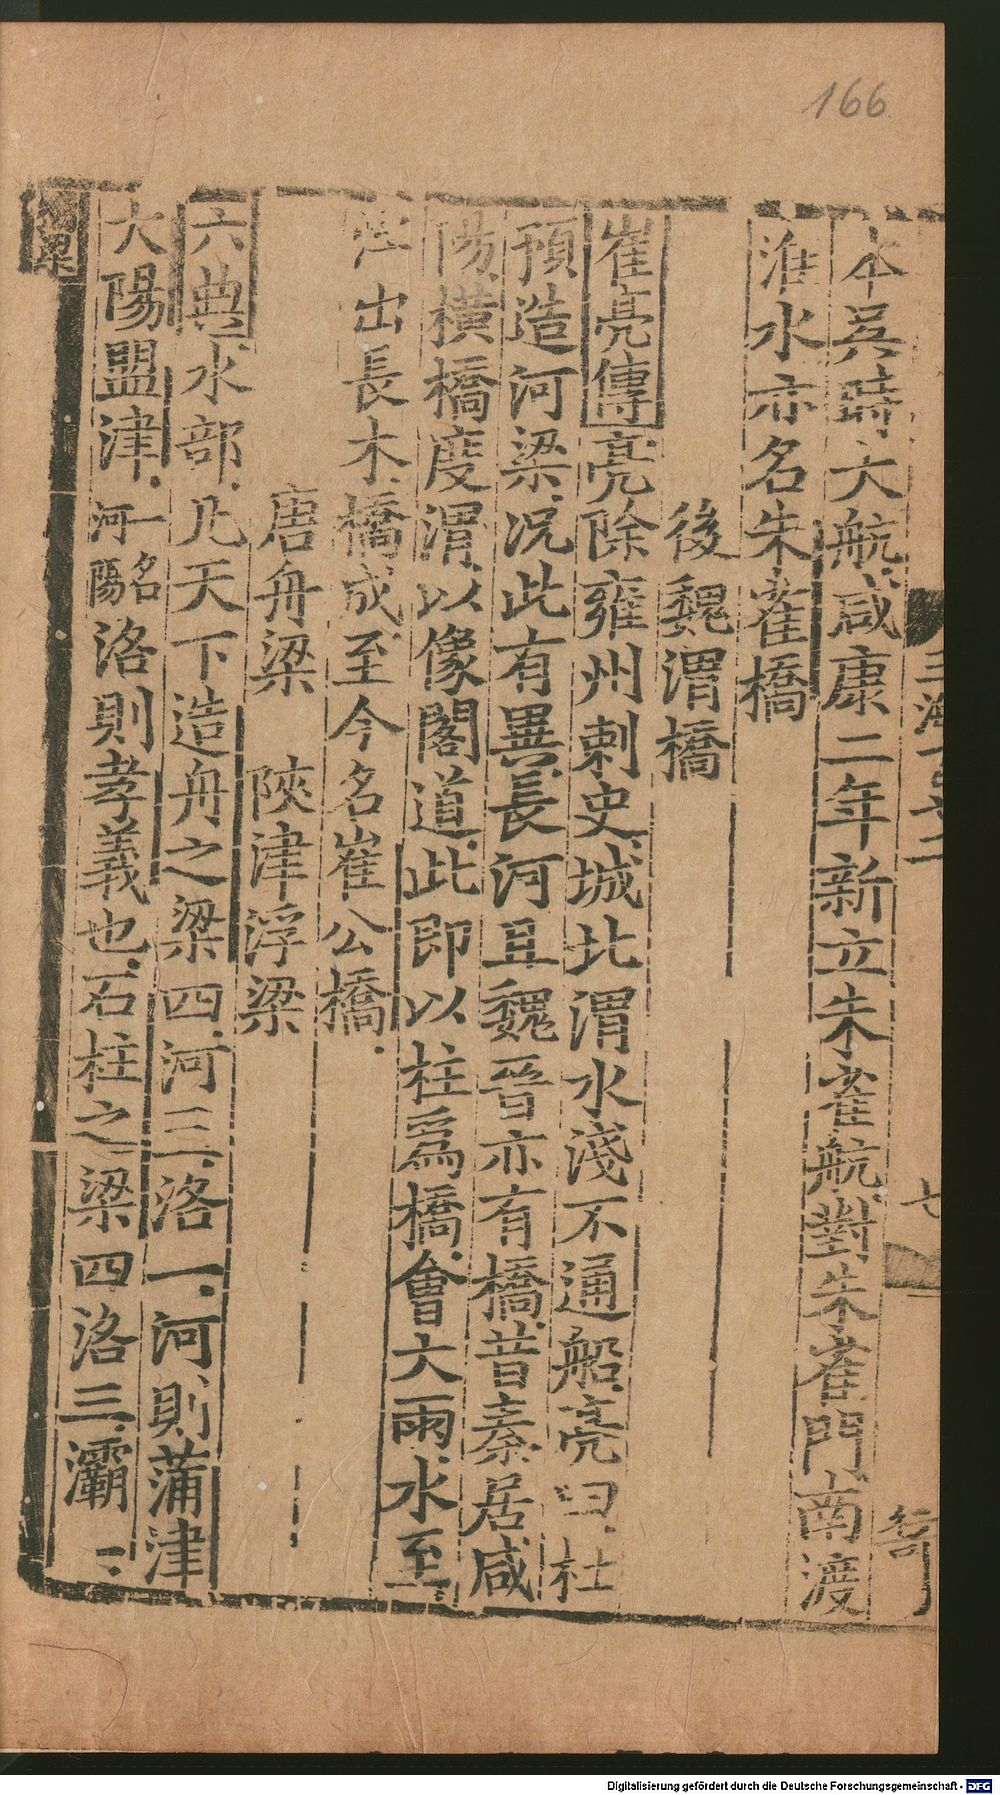 166
本吳時大航咸康二年新立朱雀航對朱雀門南渡
淮水亦名朱雀橋
後魏渭橋
崔亮傳亮除雍州刺史城北渭水淺不通船亮曰杜
預造河梁况此有異長河且魏晉亦有橋昔秦居咸
陽橫橋度渭以像閣道此即以柱爲橋會大雨水至
出長木橋成至今名崔公橋
唐舟梁 陝津浮梁
六典水部凡天下造舟之梁四河三洛一河則蒲津
大陽盟津一名河陽洛則孝義也石柱之梁四洛三灞一
梁
七
Digitalisierung gefördert durch die Deutsche Forschungsgemeinschaft - DFG